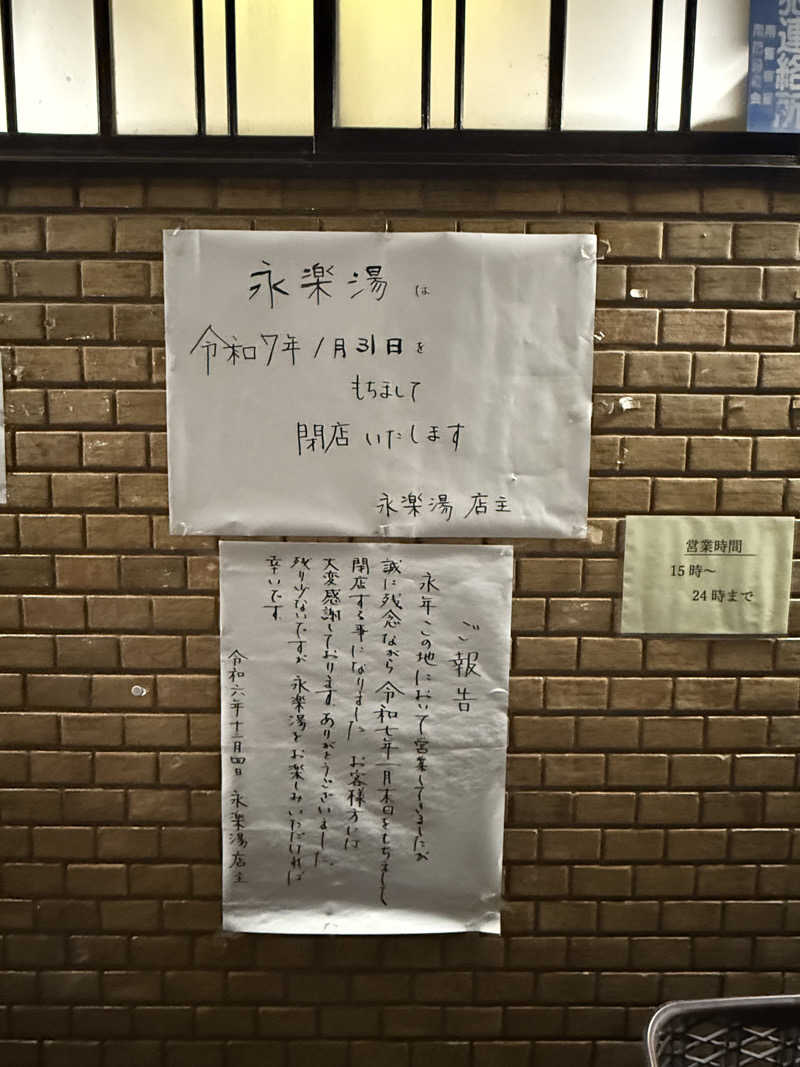 連絡所
永楽湯は
令和7年1月31日を
もちまして
閉店いたします
永楽湯 店主
営業時間
15時〜
24時まで
ご報告
永年この地において営業していましたが
誠に残念ながら令和七年一月末日をもちまして
閉店する事になりました お客様方には
大変感謝しております。ありがとうございました。
残り少ないですが 永楽湯をお楽しみいただければ
幸いです。
令和六年十一月四日 永楽湯店主